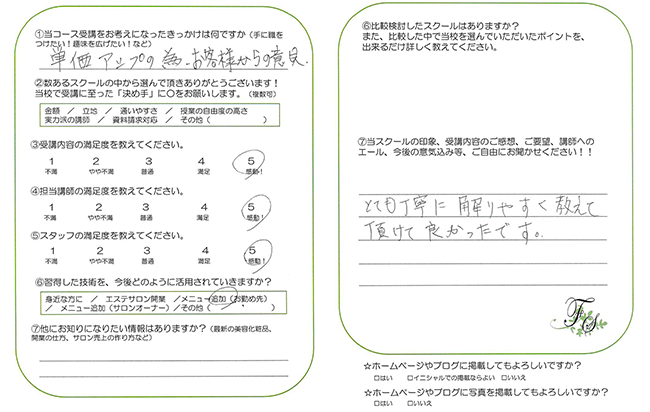 ①当コース受講をお考えになったきっかけは何ですか（手に職を
つけたい！趣味を広げたい！など）
単価アップの為 お客様からの意見.
②数あるスクールの中から選んで頂きありがとうございます！
当校で受講に至った「決め手」に○をお願いします。（複数可）
金額 ／ 立地 ／ 通いやすさ ／ 授業の自由度の高さ
実力派の講師 ／ 資料請求対応 ／ その他（　　　　　）
③受講内容の満足度を教えてください。
1 2 3 4 5
不満 やや不満 普通 満足 感動！
④担当講師の満足度を教えてください。
1 2 3 4 5
不満 やや不満 普通 満足 感動！
⑤スタッフの満足度を教えてください。
1 2 3 4 5
不満 やや不満 普通 満足 感動！
⑥習得した技術を、今後どのように活用されていきますか？
身近な方に ／ エステサロン開業 ／メニュー追加（お勤め先）
／ メニュー追加（サロンオーナー）／その他（　　　　　）
⑦他にお知りになりたい情報はありますか？（最新の美容化粧品、
開業の仕方、サロン売上の作り方など）
⑥比較検討したスクールはありますか？
また、比較した中で当校を選んでいただいたポイントを、
出来るだけ詳しく教えてください。
⑦当スクールの印象、受講内容のご感想、ご要望、講師への
エール、今後の意気込み等、ご自由にお聞かせください！！
とても丁寧に解りやすく教えて
頂けて良かったです。
☆ホームページやブログに掲載してもよろしいですか？
□はい □イニシャルでの掲載ならよい □いいえ
☆ホームページやブログに写真を掲載してもよろしいですか？
□はい □いいえ